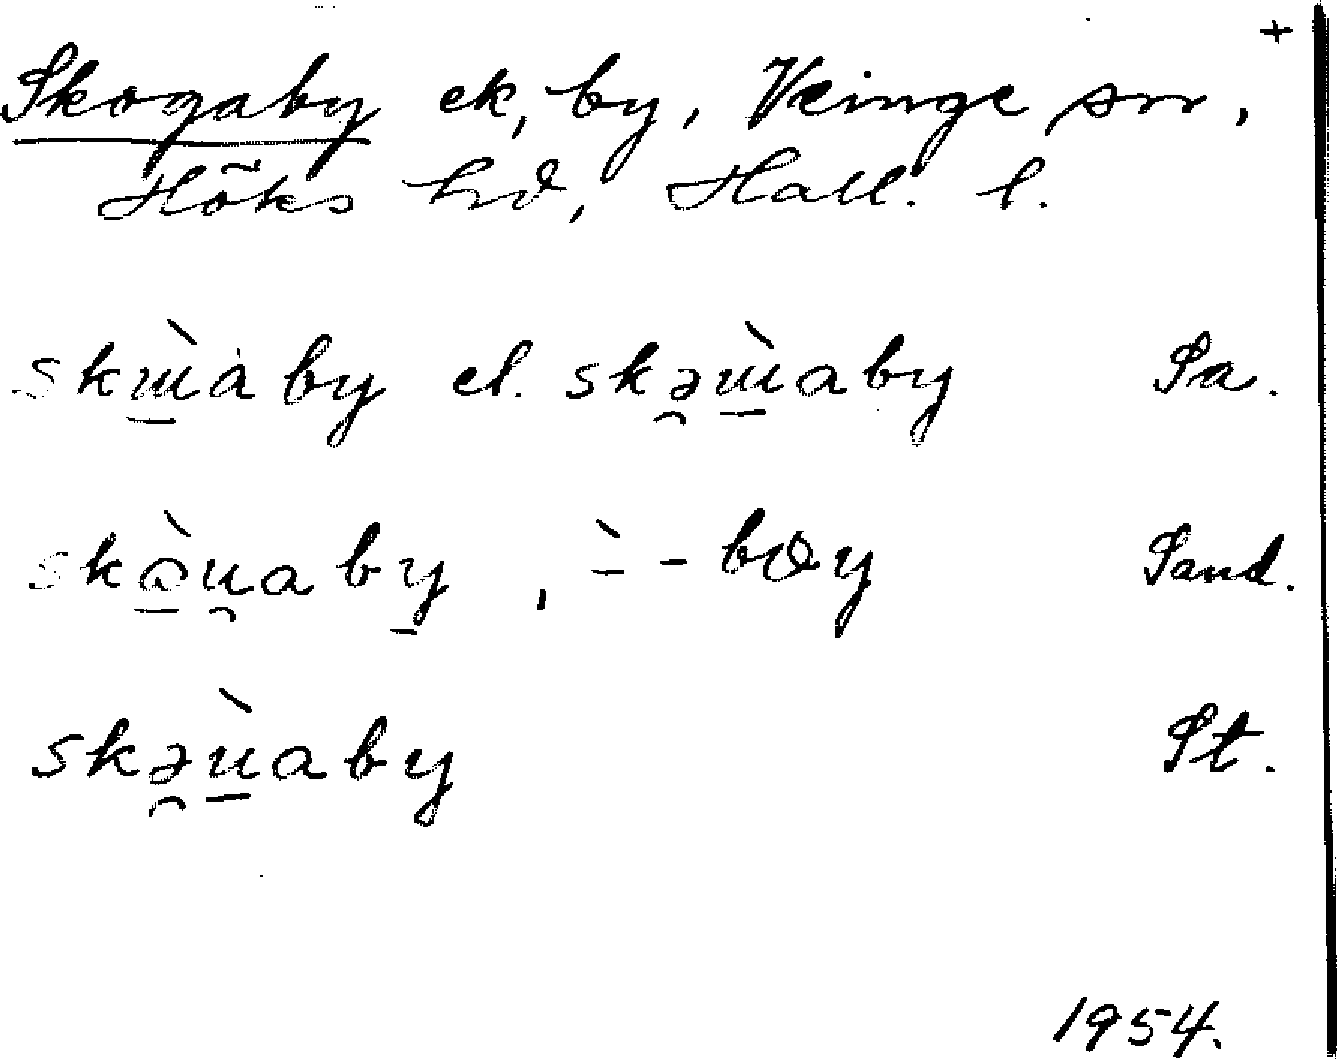 +
Skogaby ek, by, Veinge sn,
Höks hd, Hall. l.
skɯ̱̀aby el. skə̯ɯ̱̀aby Sa.
skɷ̱̀u̯aby̱, ̱̀- -bɷy Sand.
skə̯ṳ̱̀aby St.
1954.